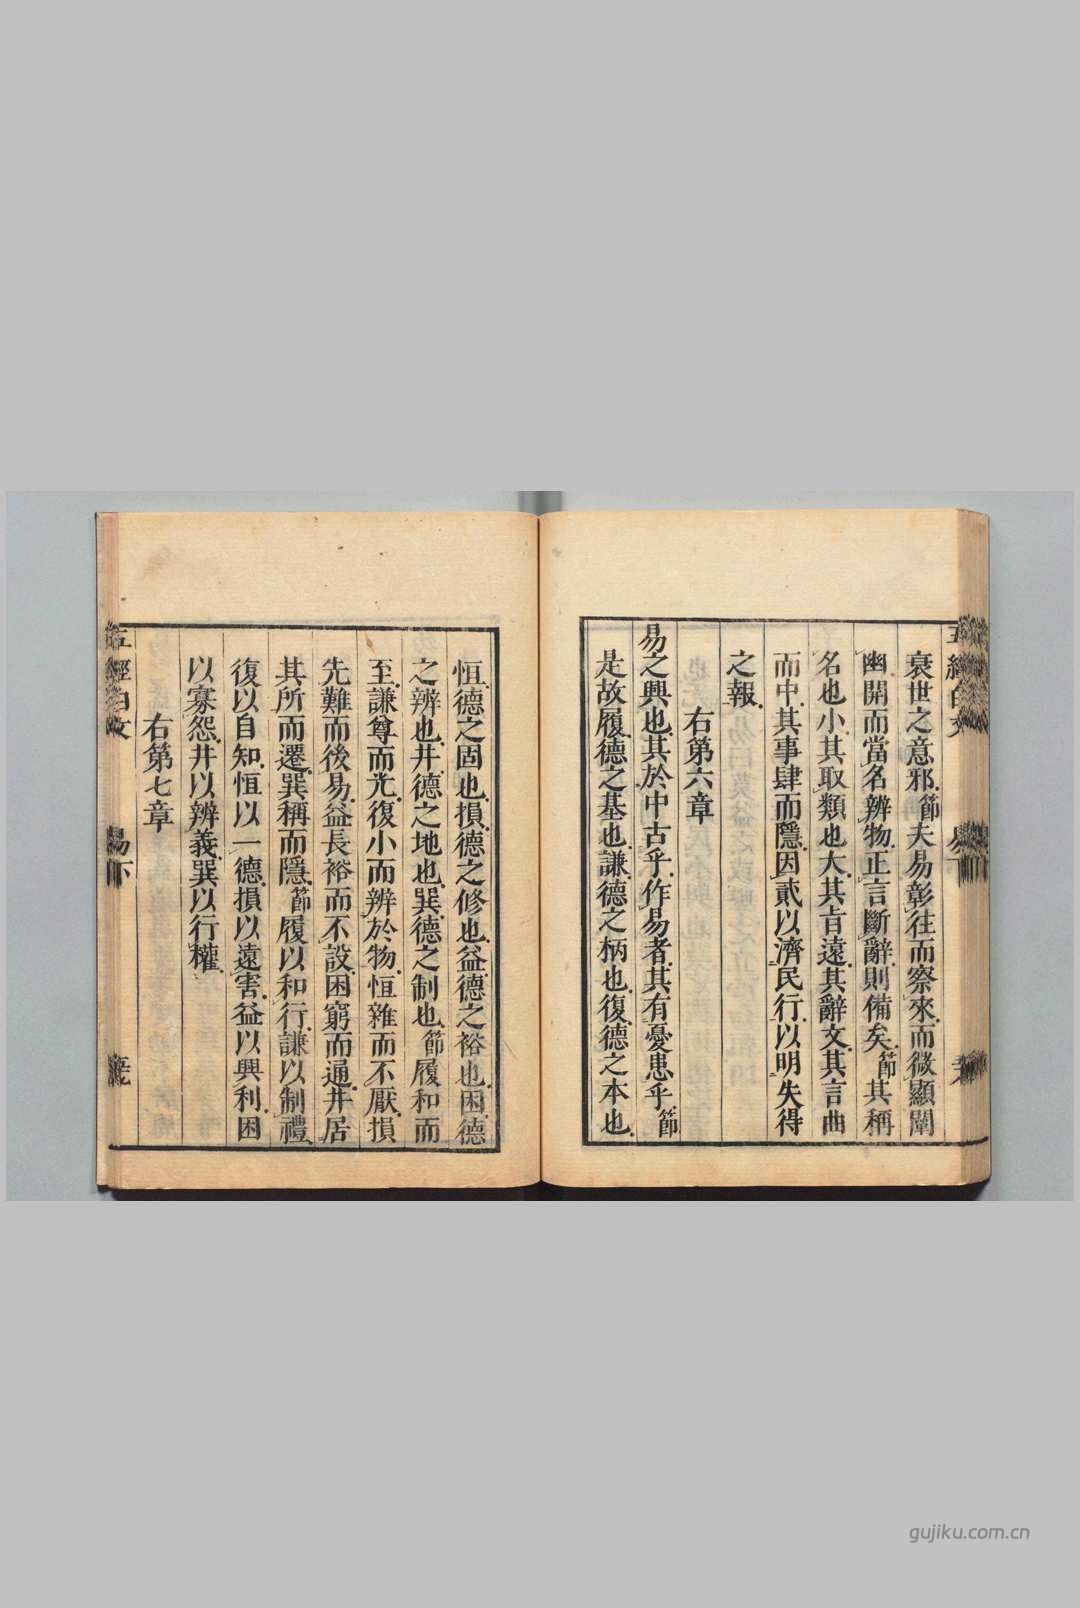 衰世之意邪節夫易彰往而察來而微顯闡
幽開而當名辨物正言斷辭則備矣節其稱
名也小其取類也大其旨遠其辭文其言曲
而中其事肆而隱因貳以濟民行以明失得
之報
右第六章
易之興也其於中古乎作易者其有憂患乎節
是故履德之基也謙德之柄也復德之本也
恒德之固也損德之修也益德之裕也困德
之辨也井德之地也巽德之制也節履和而
至謙尊而光復小而辨於物恒雜而不厭損
先難而後易益長裕而不設困窮而通井居
其所而遷巽稱而隱節履以和行謙以制禮
復以自知恒以一德損以遠害益以興利困
以寡怨井以辨義巽以行權
右第七章
五經白文
易下
gujiku.com.cn